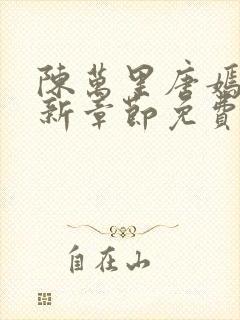 陳萬里唐嫣
新章節免費
自在山